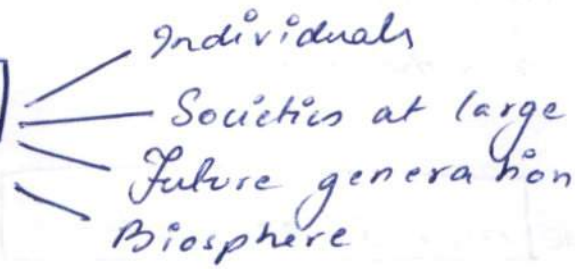 Individuals
Societies at large
Future generation
Biosphere